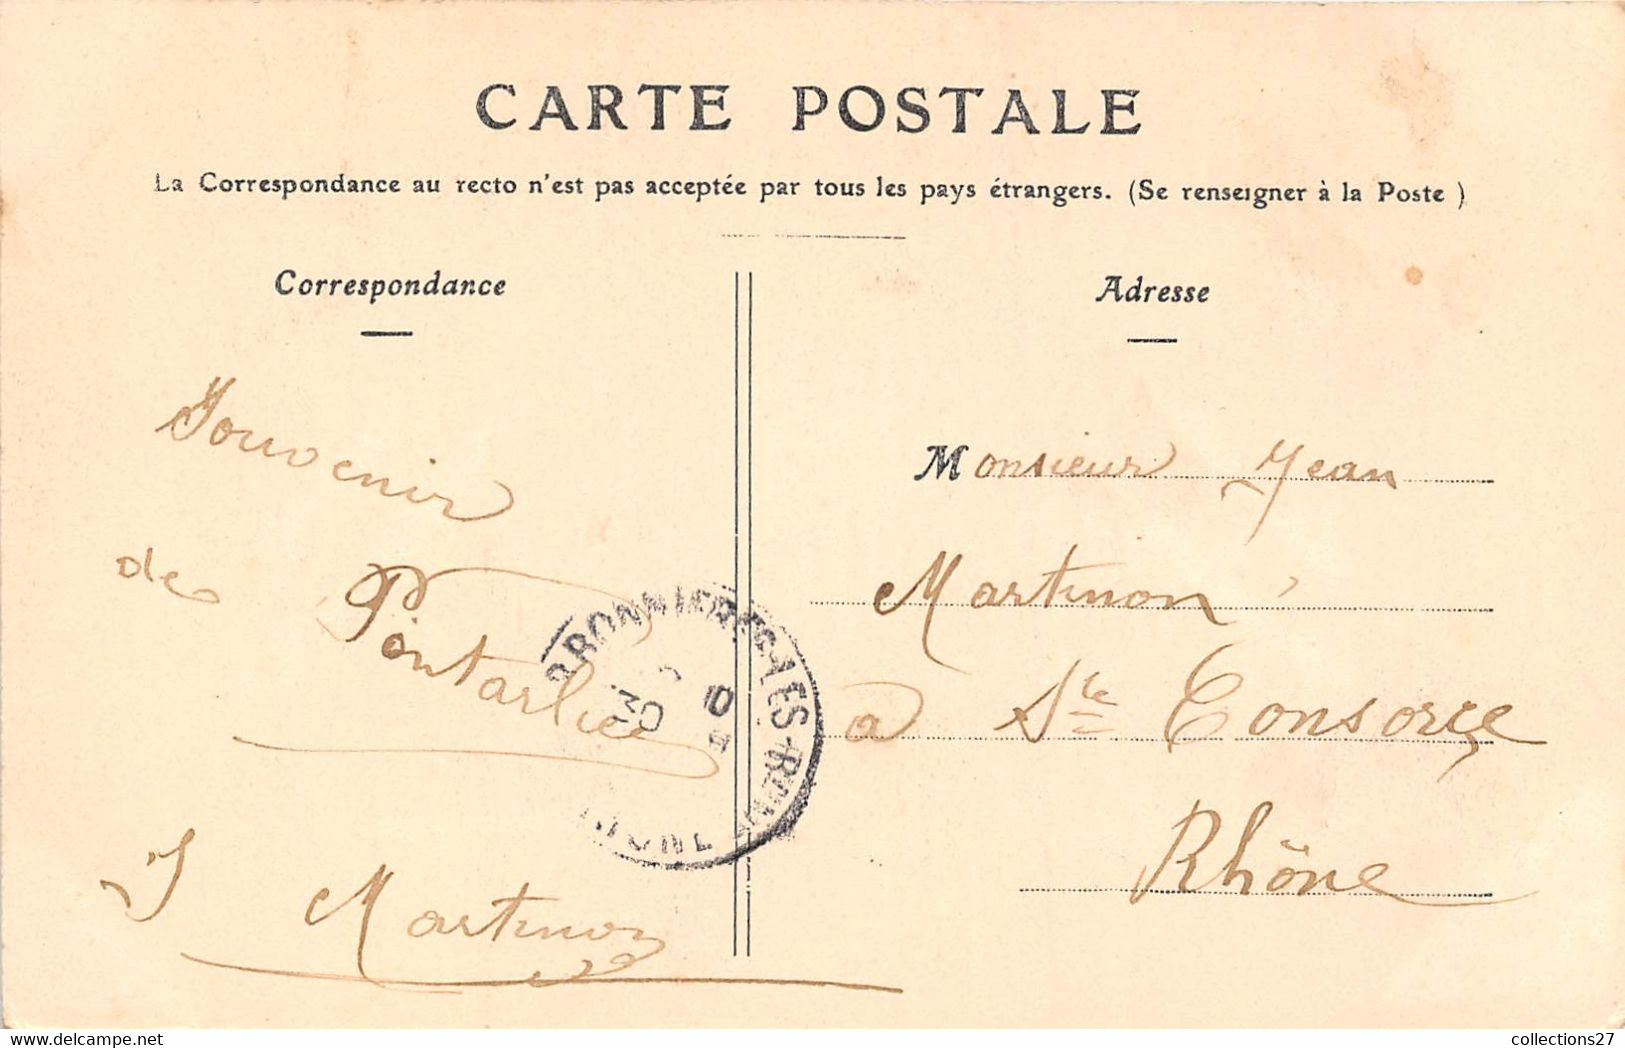 CARTE POSTALE
La Correspondance au recto n'est pas acceptée par tous les pays étrangers. (Se renseigner à la Poste )
Correspondance
Souvenir
de Pontarlier
J Martinon
Adresse
Monsieur Jean
Martinon
a Ste Consorce
Rhône
collections27